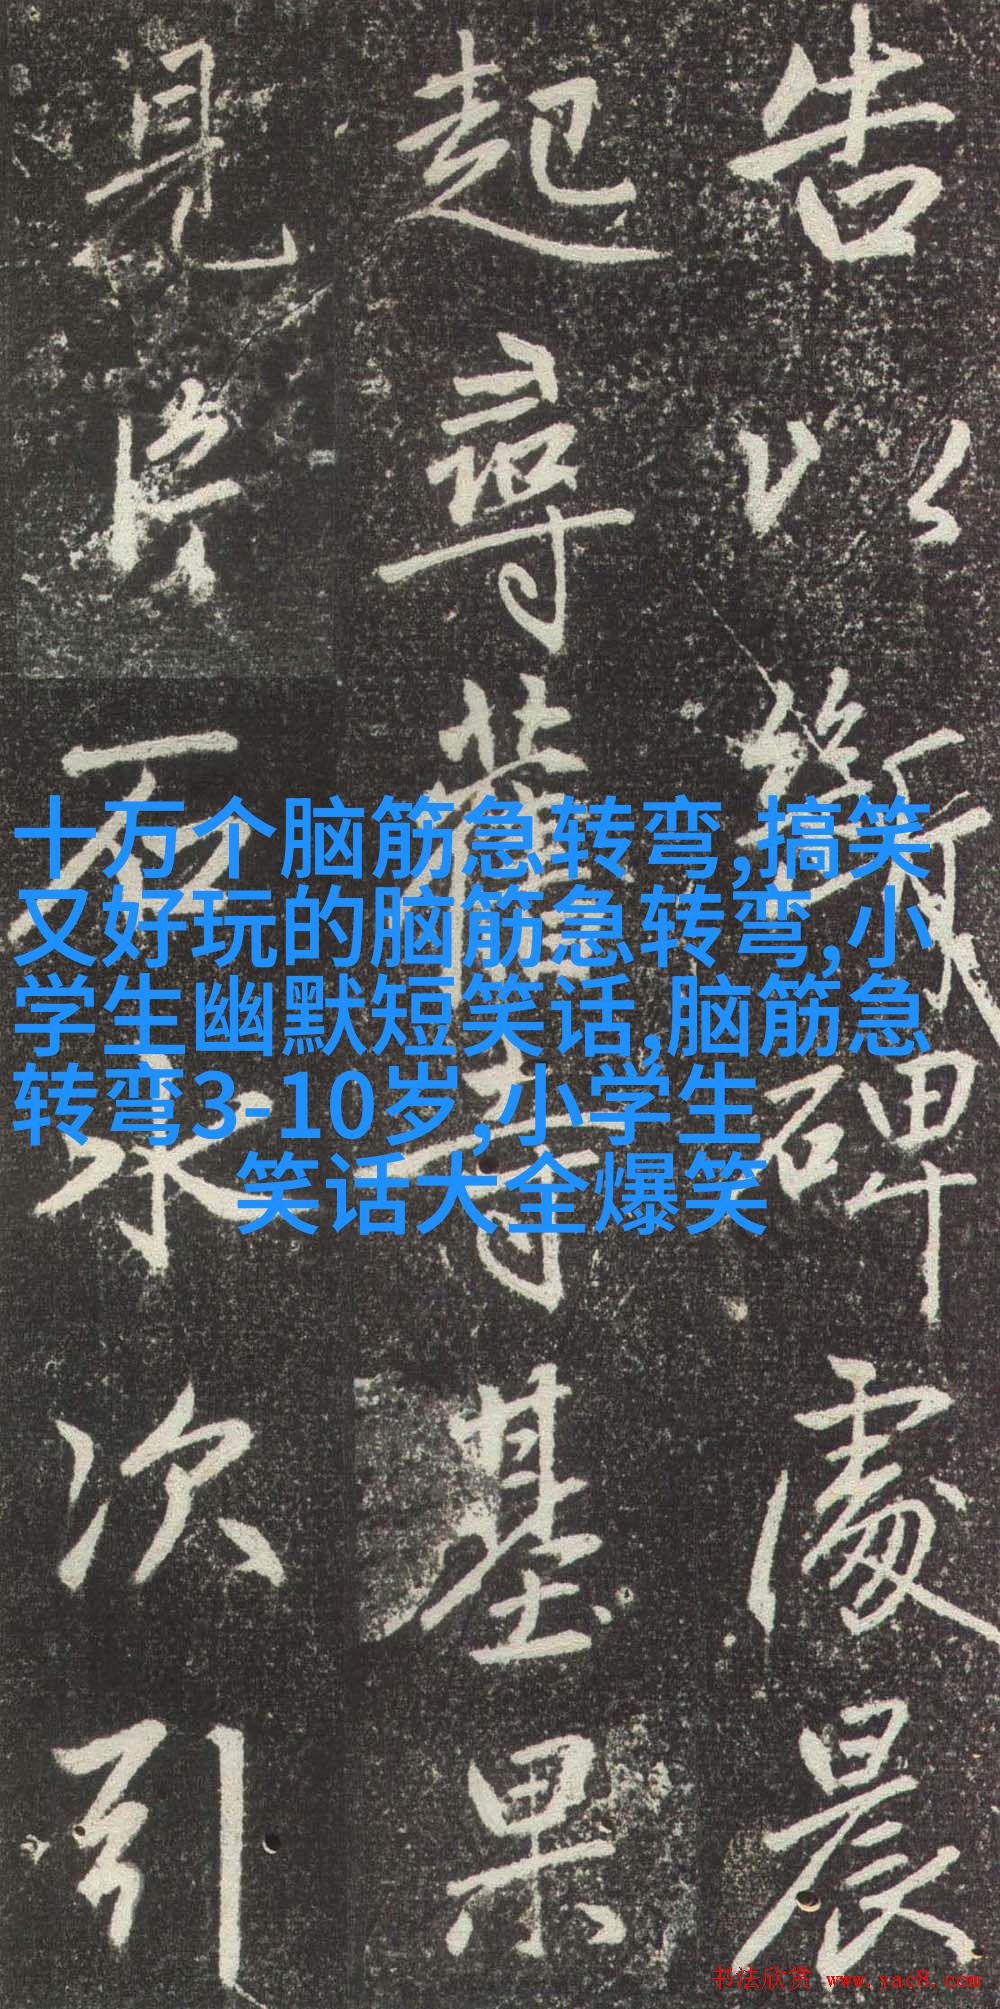 告以斷碑處晨
起尋舊寺基果
見片石次引
十万个脑筋急转弯,搞笑
又好玩的脑筋急转弯,小
学生幽默短笑话,脑筋急
转弯3-10岁,小学生
笑话大全爆笑
书法欣赏 www.yac8.com